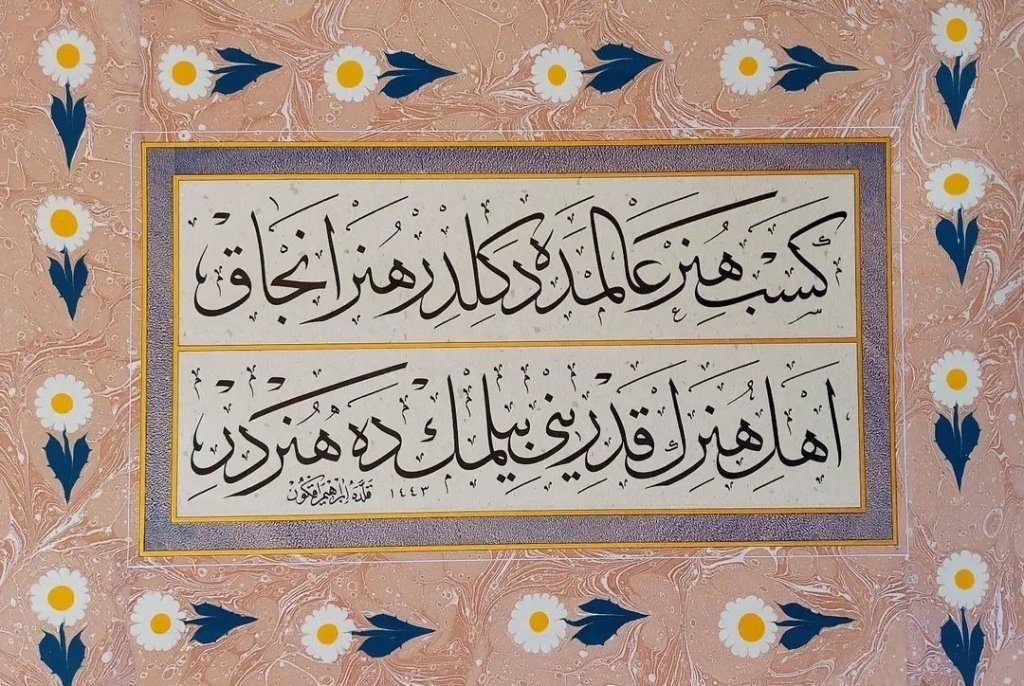 كسب هنر عالمده دكلدر هنر انجاق
اهل هنرك قدرينی بيلمك ده هنردر
١٤٤٣ قلده ابراهيم